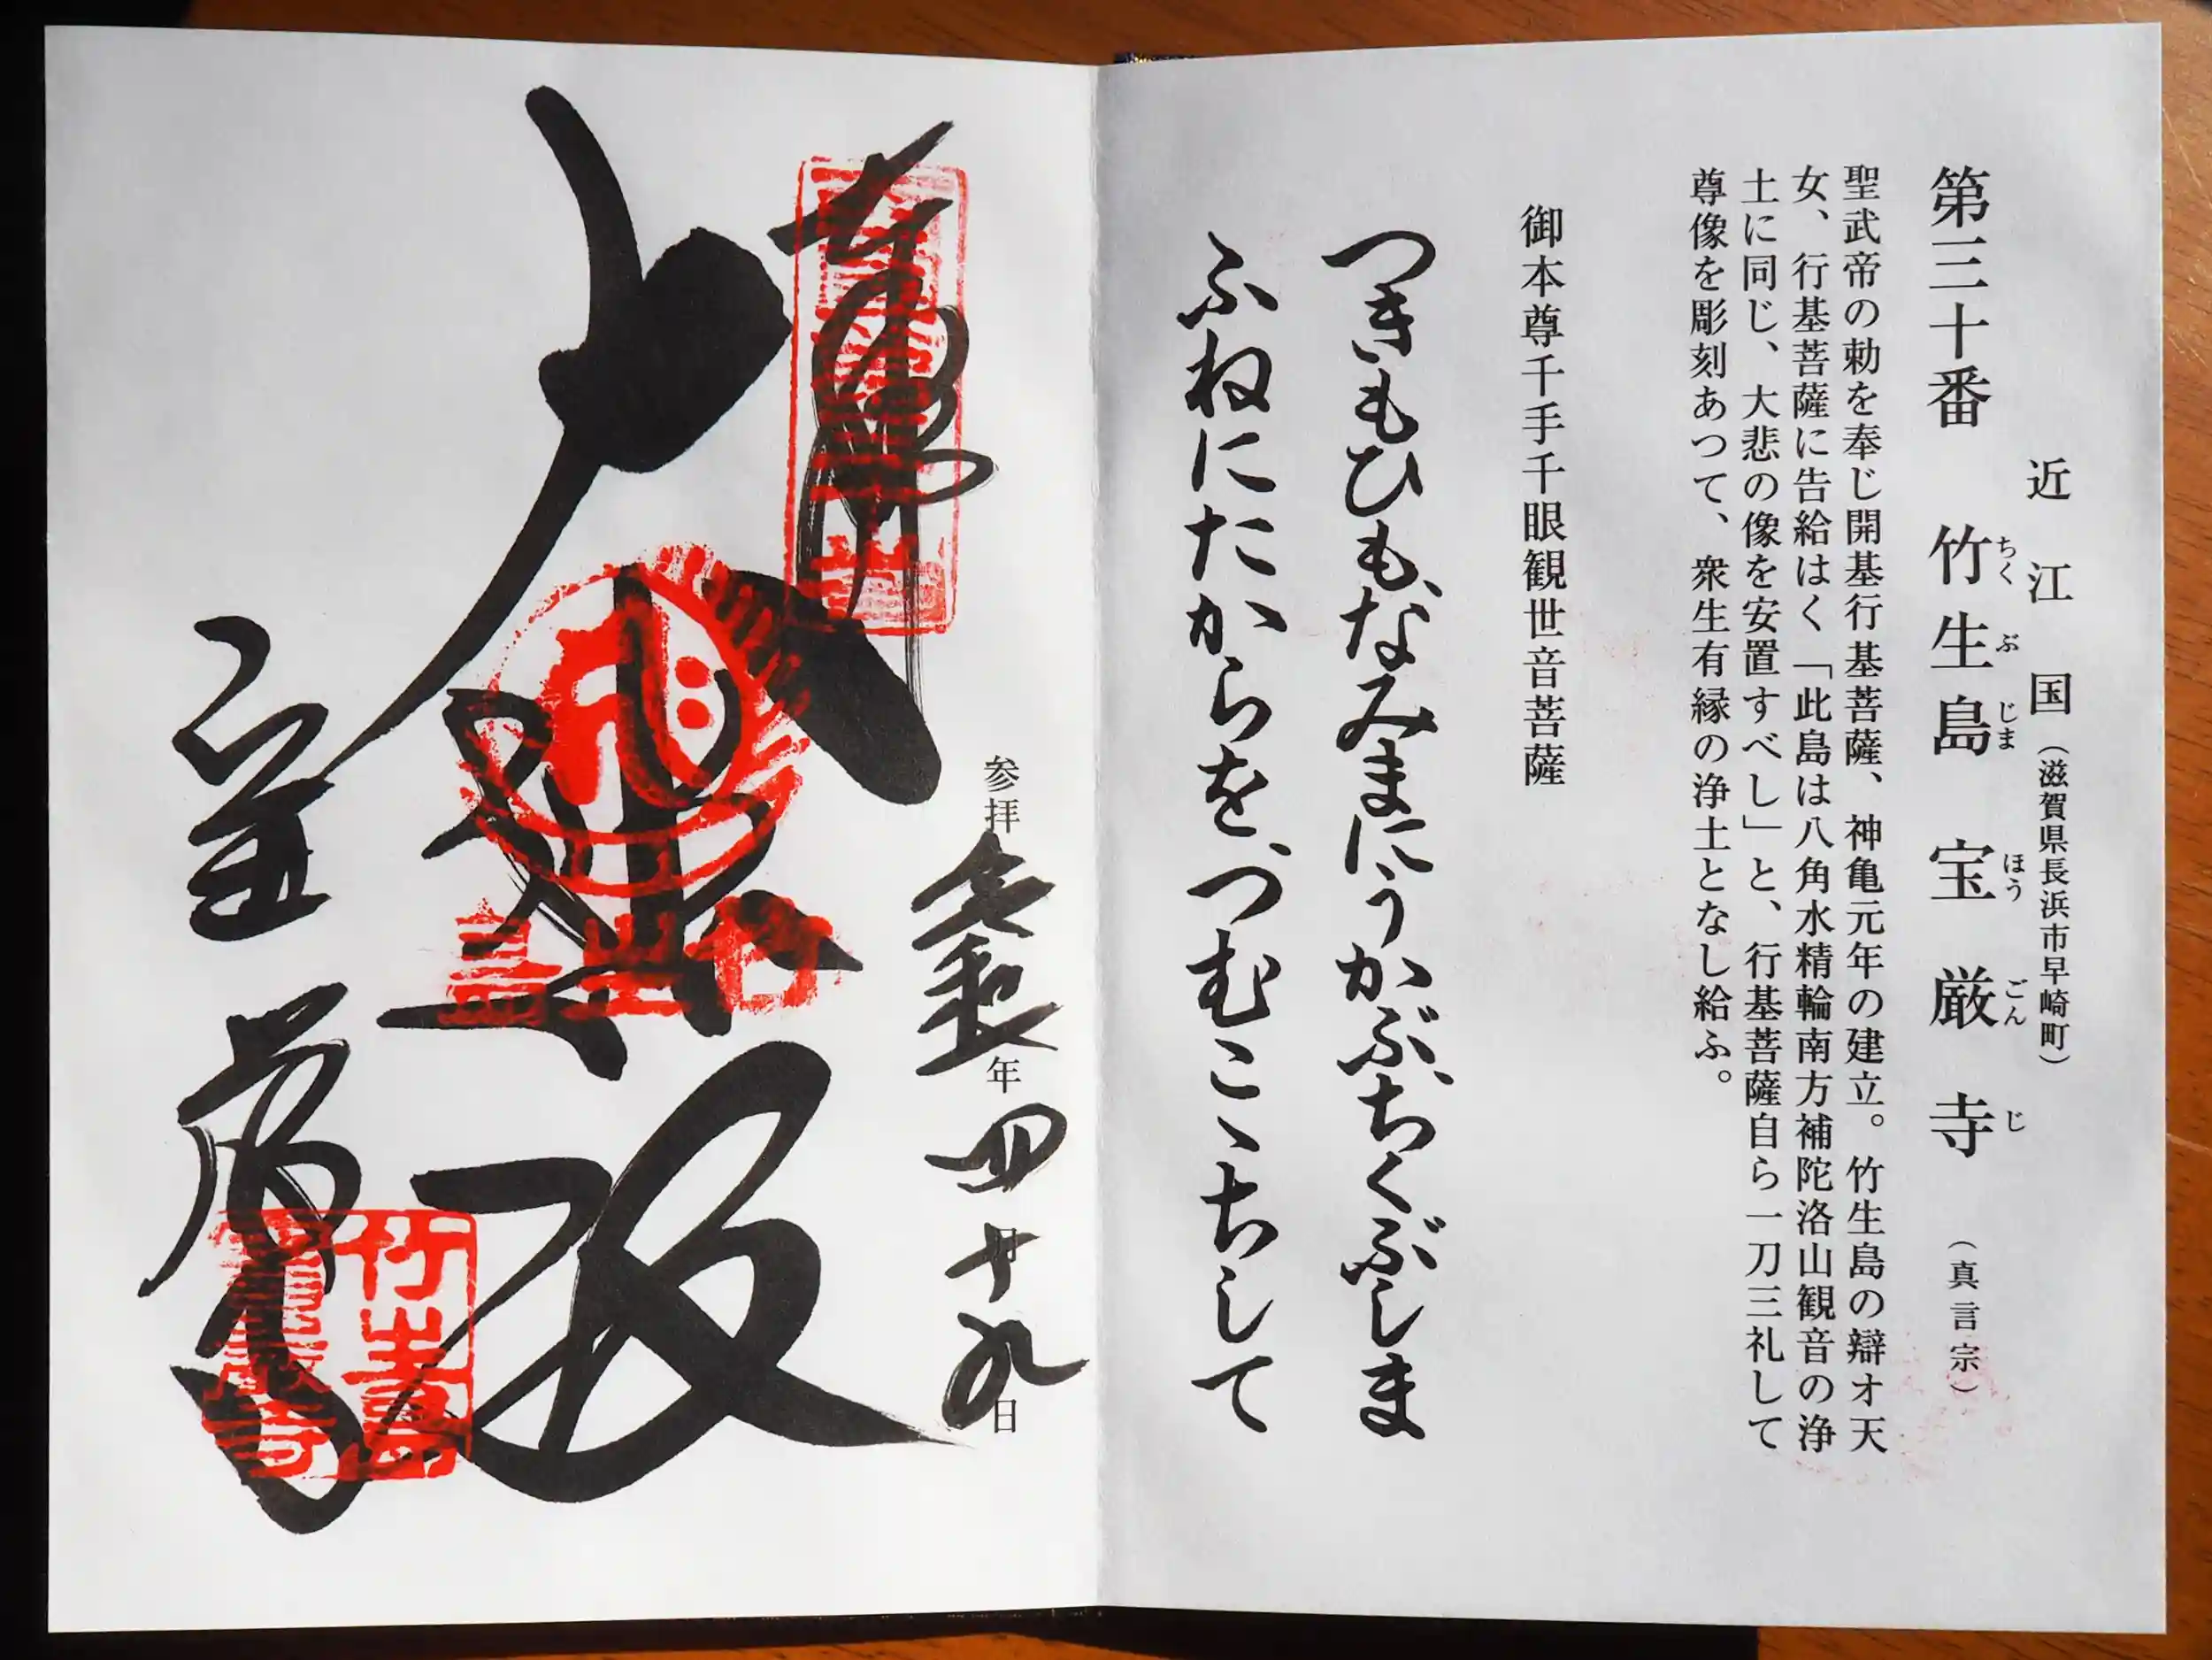 近江国（滋賀県長浜市早崎町）
第三十番 竹生島 宝厳寺（真言宗）
ちくぶじま ほうごんじ
聖武帝の勅を奉じ開基行基菩薩、神亀元年の建立。竹生島の辯才天
女、行基菩薩に告給はく「此島は八角水精輪南方補陀洛山観音の浄
土に同じ、大悲の像を安置すべし」と、行基菩薩自ら一刀三礼して
尊像を彫刻あつて、衆生有縁の浄土となし給ふ。
御本尊千手千眼観世音菩薩
つきもひもなみまにうかぶちくぶしま
ふねにたからをつむこゝちして
参拝令和年四月十九日
奉拝
大悲殿
宝厳寺
竹生島
竹生島
宝厳寺